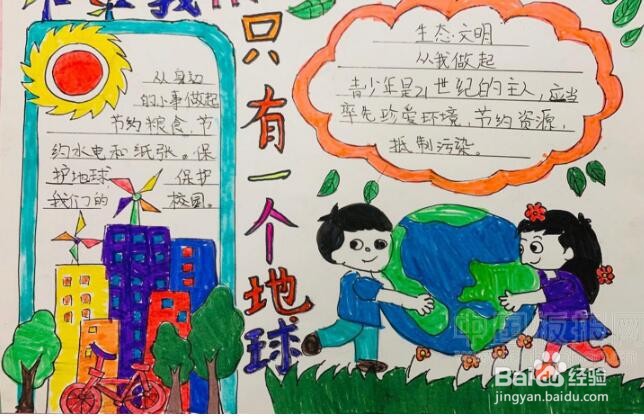 我们
只有一个地球
从身边
的小事做起
节约粮食、节
约水电和纸张。保
护地球 保护
我们的 校园。
生态文明
从我做起
青少年是21世纪的主人,应当
率先珍爱环境,节约资源,
抵制污染。
Baidu 经验
jingyan.baidu.com